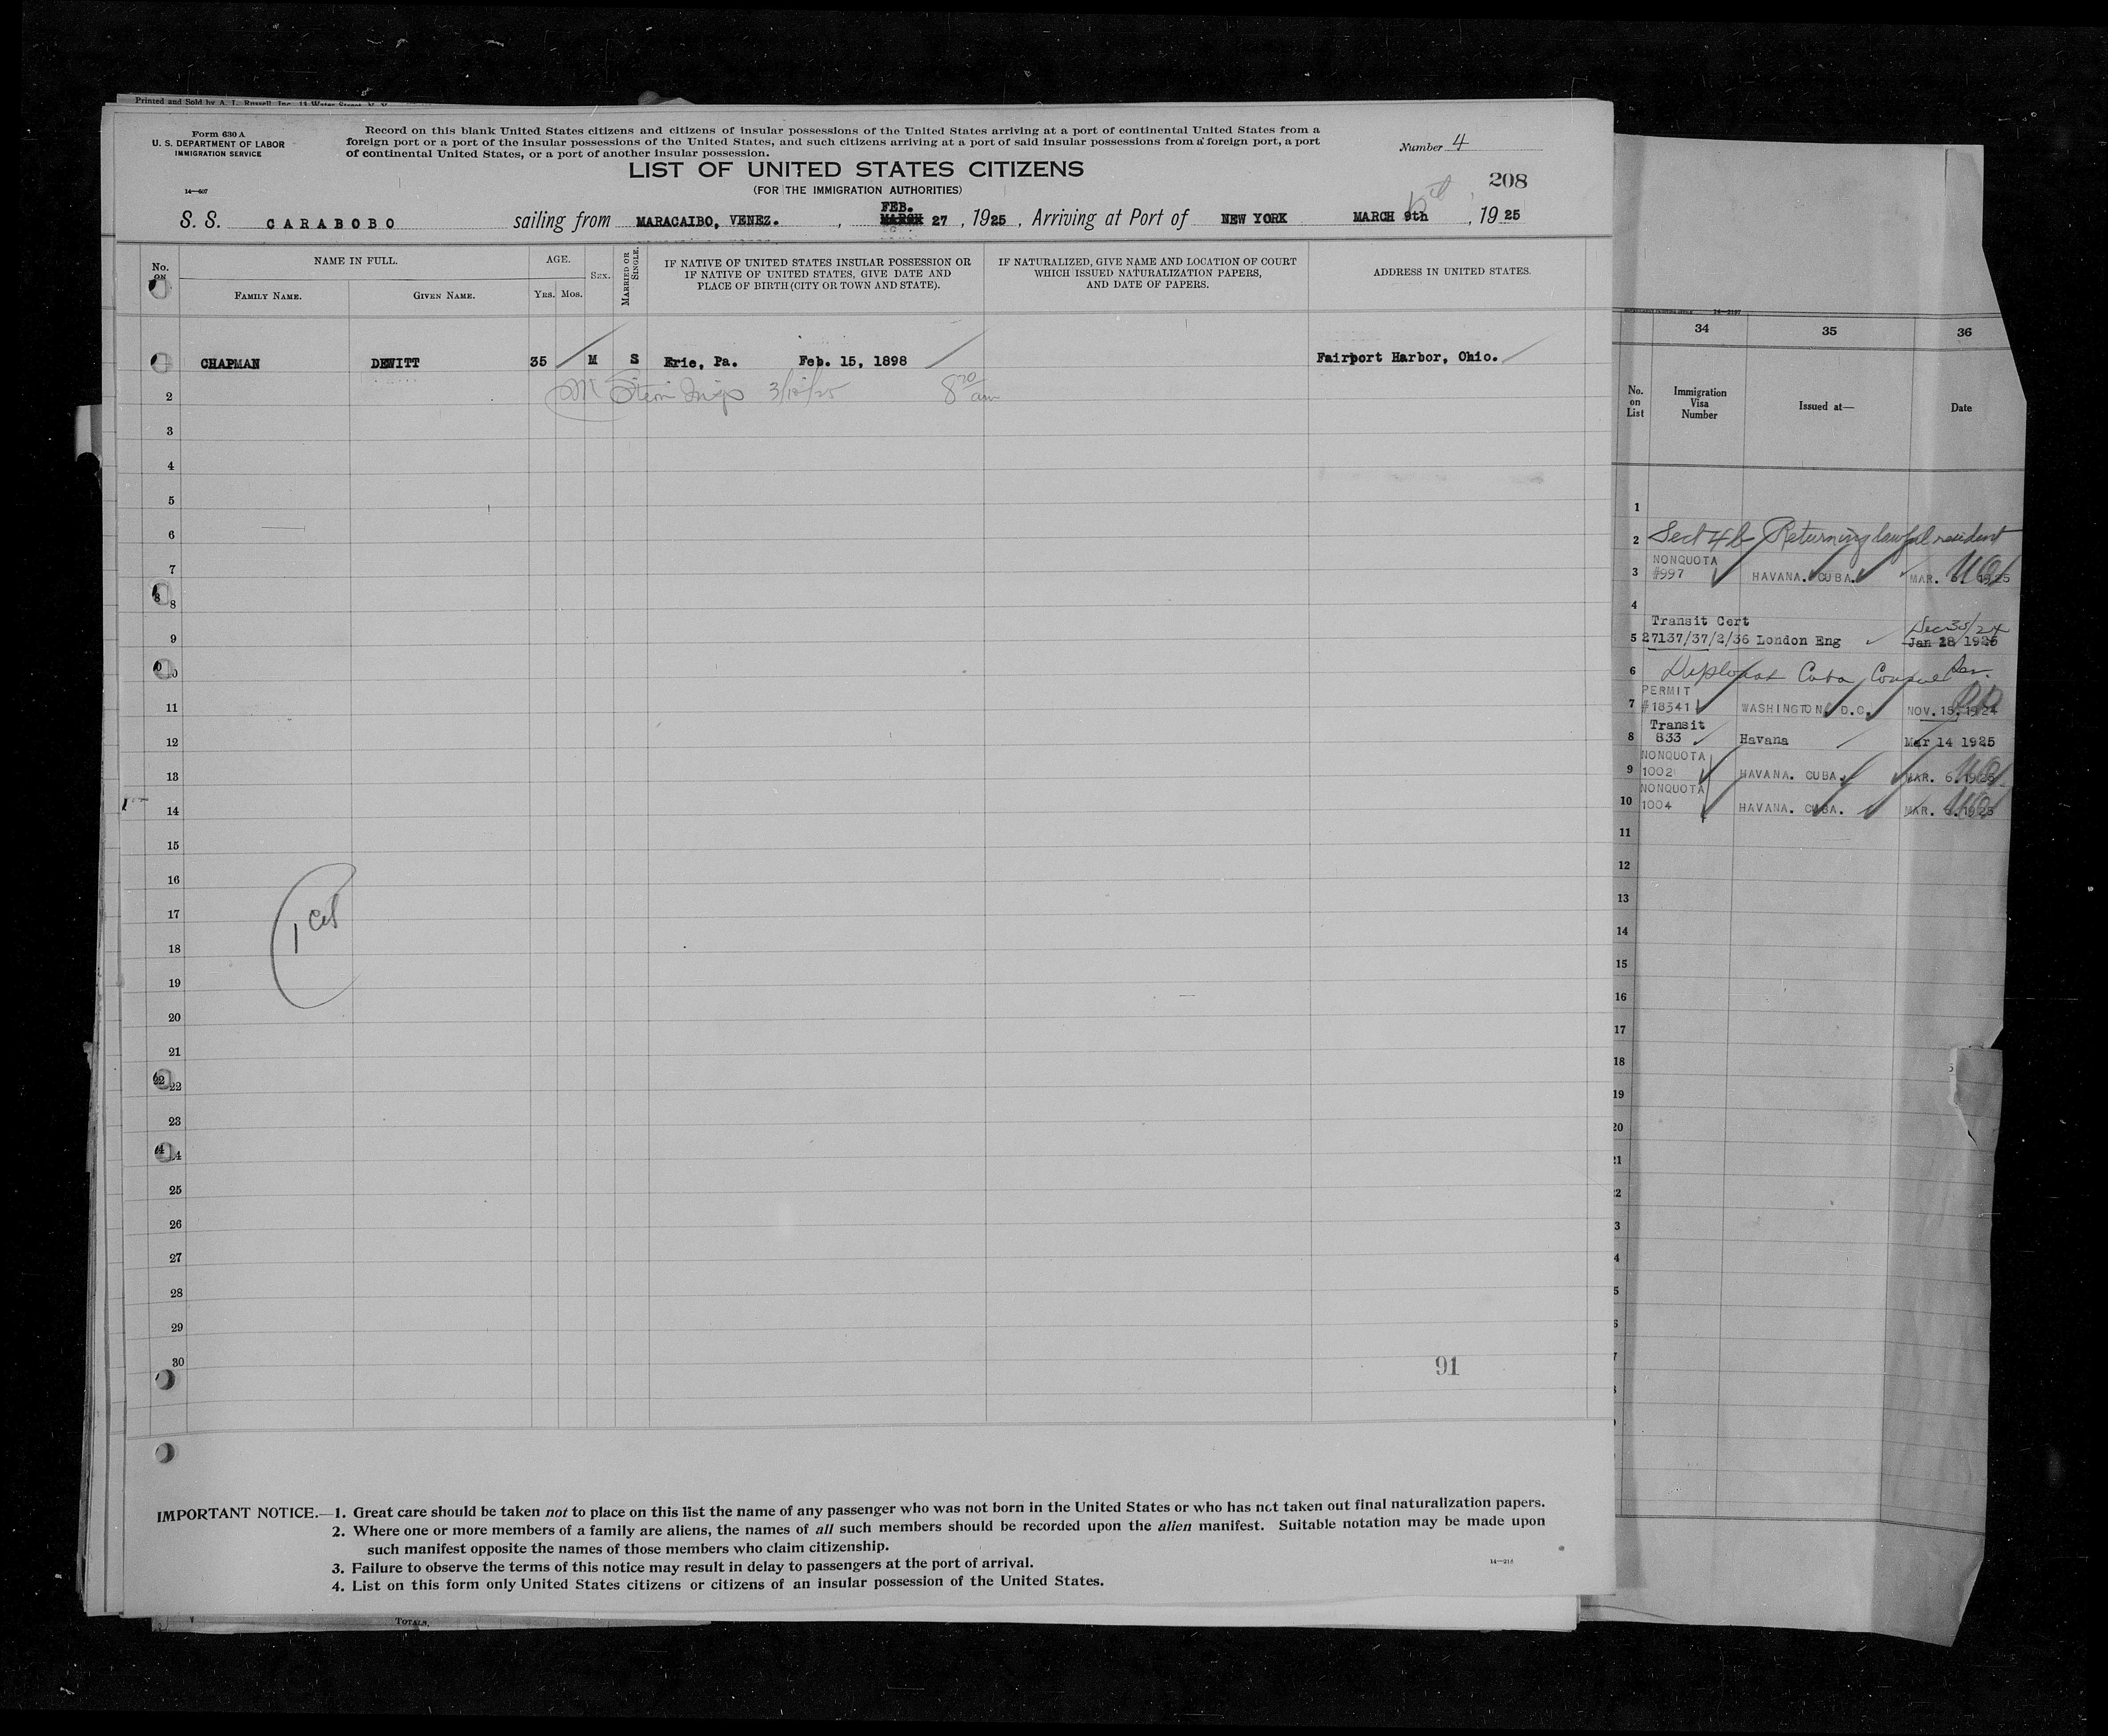 Printed and Sold by A. L. Russell, Inc. 11 Water Street, N. Y.
Form 630 A
U. S. DEPARTMENT OF LABOR
IMMIGRATION SERVICE
14—507
Record on this blank United States citizens and citizens of insular possessions of the United States arriving at a port of continental United States from a
foreign port or a port of the insular possessions of the United States, and such citizens arriving at a port of said insular possessions from a foreign port, a port
of continental United States, or a port of another insular possession.
Number 4
LIST OF UNITED STATES CITIZENS
(FOR THE IMMIGRATION AUTHORITIES)
208
FEB.
S. S. CARABOBO sailing from MARACAIBO, VENEZ. , MARCH 27 , 1925 , Arriving at Port of NEW YORK MARCH 9th , 1925
No. ON
NAME IN FULL.
FAMILY NAME.
GIVEN NAME.
AGE.
YRS. MOS.
SEX.
MARRIED OR SINGLE.
IF NATIVE OF UNITED STATES INSULAR POSSESSION OR
IF NATIVE OF UNITED STATES, GIVE DATE AND
PLACE OF BIRTH (CITY OR TOWN AND STATE).
IF NATURALIZED, GIVE NAME AND LOCATION OF COURT
WHICH ISSUED NATURALIZATION PAPERS,
AND DATE OF PAPERS.
ADDRESS IN UNITED STATES.
CHAPMAN DEWITT 35 M S Erie, Pa. Feb. 15, 1898 Fairport Harbor, Ohio.
2 Stern Insp 3/12/25 8 am
3
4
5
6
7
8 8
9
10
11
12
13
14
15
16
17
18
19
20
21
22 22
23
24
25
26
27
28
29
30
1
91
IMPORTANT NOTICE.—1. Great care should be taken not to place on this list the name of any passenger who was not born in the United States or who has not taken out final naturalization papers.
2. Where one or more members of a family are aliens, the names of all such members should be recorded upon the alien manifest. Suitable notation may be made upon
such manifest opposite the names of those members who claim citizenship.
3. Failure to observe the terms of this notice may result in delay to passengers at the port of arrival.
4. List on this form only United States citizens or citizens of an insular possession of the United States.
TOTALS,
34 35 36
No. on List
Immigration Visa Number
Issued at—
Date
1
2 Sect 4b Returning lawful resident
NONQUOTA
3 #997 HAVANA. CUBA. MAR. 1925
4
Transit Cert Dec 30/24
5 27137/37/2/36 London Eng Jan 28 1925
6 Diplomat Cuba Consul
PERMIT
7 #18341 WASHINGTON, D.C. NOV. 15. 1924
Transit
8 833 Havana Mar 14 1925
NONQUOTA
9 1002 HAVANA. CUBA. MAR. 6. 1925
NONQUOTA
10 1004 HAVANA. CUBA. MAR. 1925
11
12
13
14
15
16
17
18
19
20
21
22